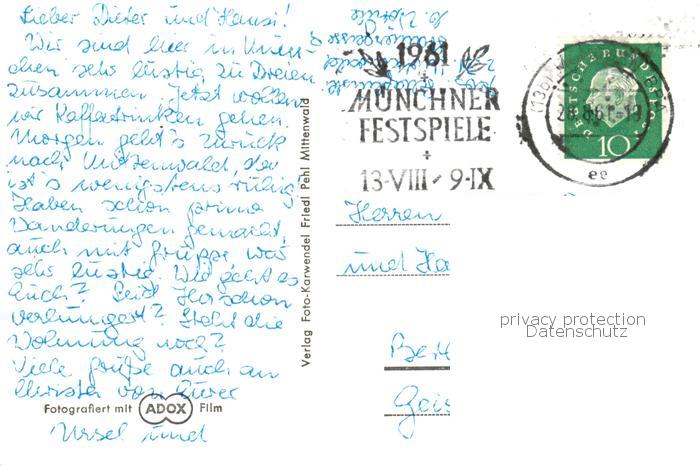 Lieber Dieter und Hansi!
Wir sind hier in Mün-
chen sehr lustig zu Dreien
zusammen. Jetzt wollen
wir Kaffeetrinken gehen.
Morgen geht's zurück
nach Mittenwald, da
ist's wenigstens ruhig
Haben schon prima
Wanderungen gemacht,
auch mit Gruppe, war
sehr lustig. Wie geht es
Euch? Seid Ihr schon
verhungert? Steht die
Wohnung noch?
Viele Grüße auch an
Christa von Eurer
Ursel und
Fotografiert mit ADOX Film
Verlag Foto-Karwendel Friedl Pehl Mittenwald
1961
+
MÜNCHNER
FESTSPIELE
+
13·VIII - 9·IX
DEUTSCHE BUNDESPOST
10
ee
Herren
und
privacy protection
Datenschutz